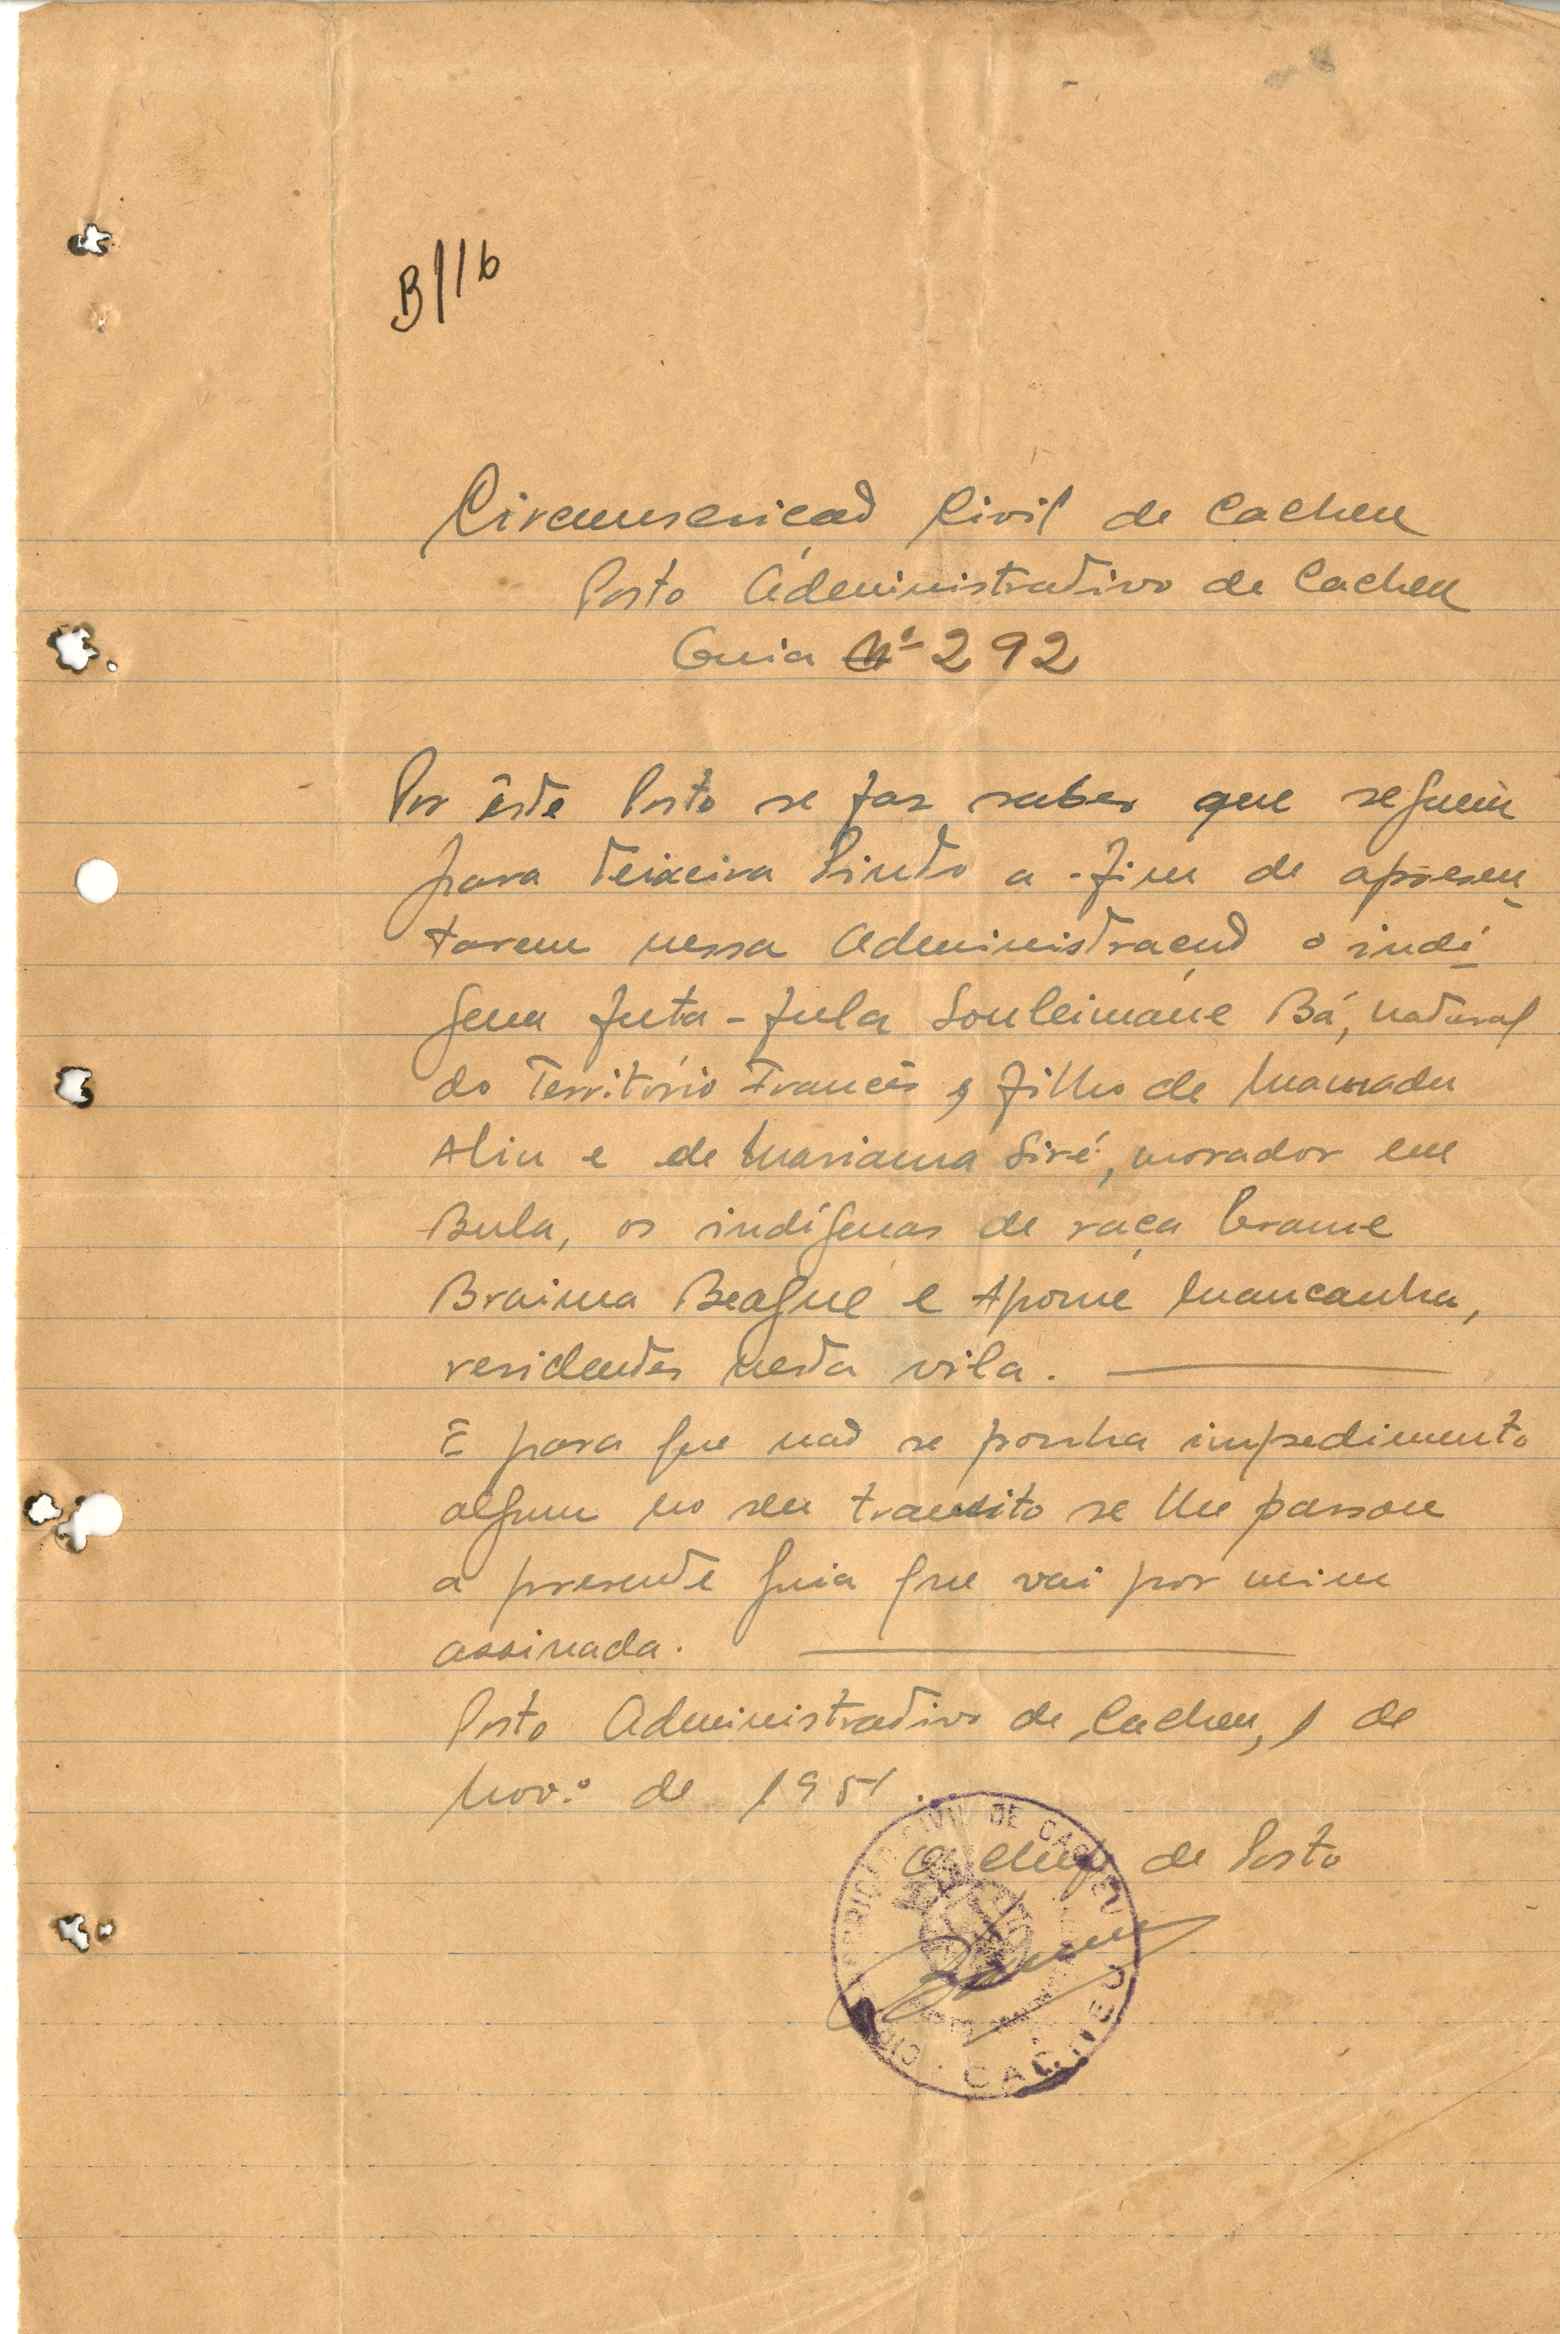 B//6
Circunscrição Civil de Cacheu
Posto Administrativo de Cacheu
Guia Nº 292
Por êste Posto se faz saber que seguem
para Teixeira Pinto a-fim de apresen-
tarem nessa Administração o indí-
gena futa-fula Souleimane Bá, natural
do Território Francês, filho de Mamadu
Aliu e de Mariama Siré, morador em
Bula, os indígenas de raça brame
Braima Beague e Apomé Mancanha,
residentes nesta vila.
E para que não se ponha impedimento
algum no seu transito se lhe passou
a presente guia que vai por mim
assinada.
Posto Administrativo de Cacheu, 1 de
Nov.º de 1951.
O Chefe de Posto
CIVIL DE CACHEU
CACHEU